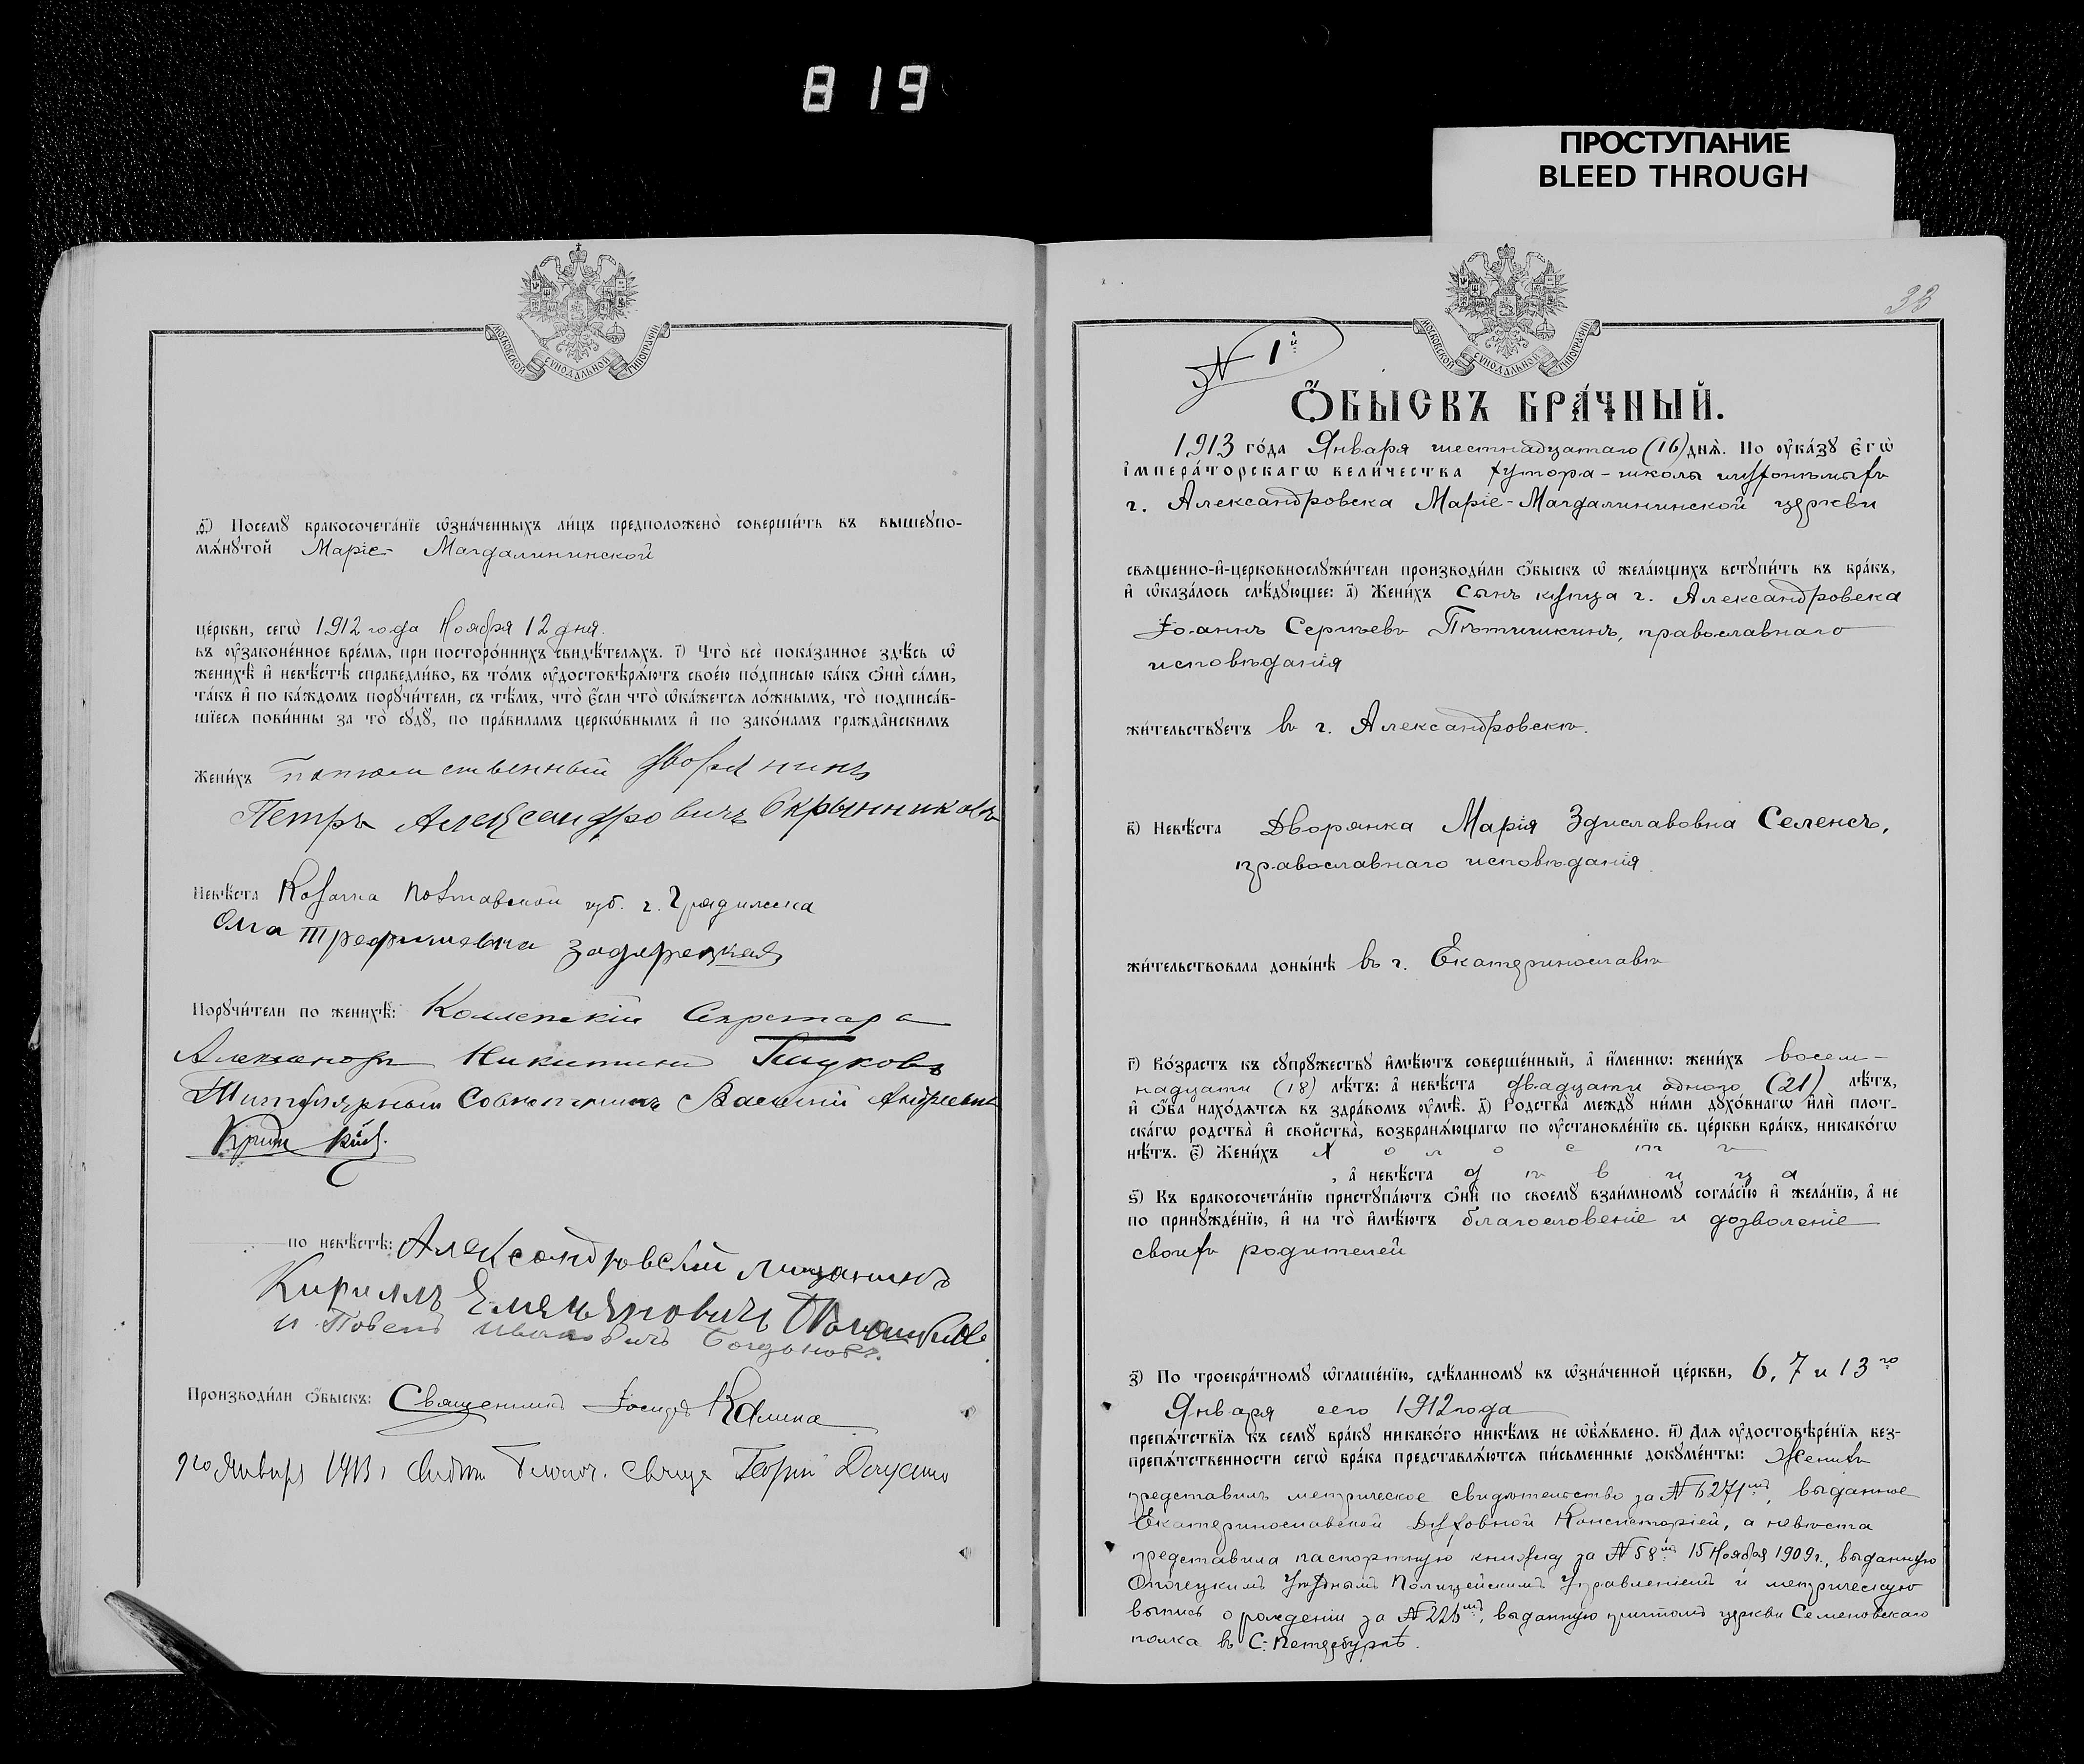 819
ПРОСТУПАНИЕ
BLEED THROUGH
МОСКОВСКОЙ СѴНОДАЛЬНОЙ ТИПОГРАФІИ
ѳ҃) Посемꙋ̀ бракосочета́нїе ѡ҆зна́ченныхъ ли́цъ предположено̀ соверши́ть въ вышеꙋпо-
мѧ́нꙋтой Маріе-Магдалининской
це́ркви, сегѡ̀ 1912 года Ноября 12 дня.
въ ᲂу҆зако́ненное вре́мѧ, при посторо́ннихъ свидѣ́телѧхъ. і҃) Что̀ всѐ пока́занное здѣ́сь ѡ҆
женихѣ̀ и҆ невѣ́стѣ справедли́во, въ то́мъ ᲂу҆достовѣрѧ́ютъ свое́ю по́дписью ка́къ ѻ҆нѝ са́ми,
та́къ и҆ по ка́ждомъ порꙋчи́тели, съ тѣ́мъ, что̀ є҆́сли что̀ ѡ҆ка́жетсѧ ло́жнымъ, то̀ подписа́в-
шїесѧ пови́нны за то̀ сꙋдꙋ̀, по пра́виламъ церкѡ́внымъ и҆ по зако́намъ гражда́нскимъ
Жени́хъ Потомственный дворянинъ
Петръ Александровичъ Скрынниковъ
Невѣ́ста Козачка Полтавской губ. г. Градижска
Ольга Трефильевна
Порꙋчи́тели по женихѣ̀: Коллежскій Секретарь
Александръ Никитинъ Глуковъ
Титулярный Совѣтникъ Василій Андреевичъ
по невѣ́стѣ: Александровскій мещанинъ
Кириллъ Емельяновичъ
и Павелъ Ивановичъ
Производи́ли ѻ҆́быскъ: Священникъ Іосифъ Калина
9го Января 1913 г. Благоч. Свящ Георгій
33
№ 1й
МОСКОВСКОЙ СѴНОДАЛЬНОЙ ТИПОГРАФІИ
Ѻ҆́БЫСКЪ БРА́ЧНЫЙ.
1913 го́да Января шестнадцатаго (16) днѧ̀. По ᲂу҆ка́зꙋ Є҆гѡ̀
И҆мпера́торскагѡ вели́чества хутора-школы глухонѣмыхъ
г. Александровска Маріе-Магдалининской церкви
свѧще́нно-и҆-церковнослꙋжи́тели производи́ли ѻ҆́быскъ ѡ҆ жела́ющихъ встꙋпи́ть въ бра́къ,
и҆ ѡ҆каза́лось слѣ́дꙋющее: а҃) Жени́хъ Сынъ купца г. Александровска
Іоаннъ Сергѣевъ Пѣтишкинъ, православнаго
исповѣданія
жи́тельствꙋетъ въ г. Александровскѣ.
в҃) Невѣ́ста Дворянка Марія Здиславовна Селенсъ,
православнаго исповѣданія
жи́тельствовала доны́нѣ въ г. Екатеринославѣ
г҃) Во́зрастъ къ сꙋпрꙋ́жествꙋ и҆мѣ́ютъ соверше́нный, а҆ и҆́меннѡ: жени́хъ восем-
надцати (18) лѣ́тъ: а҆ невѣ́ста двадцати одного (21) лѣ́тъ,
и҆ ѻ҆́ба нахо́дѧтсѧ въ здра́вомъ ᲂу҆мѣ̀. д҃) Родства̀ междꙋ̀ ни́ми дꙋхо́внагѡ и҆лѝ плот-
ска́гѡ родства̀ и҆ сво́йства̀, возбранѧ́ющагѡ по ᲂу҆становле́нїю св. це́ркви бра́къ, никако́гѡ
нѣ́тъ. є҃) Жени́хъ холостъ
, а҆ невѣ́ста дѣвица
ѕ҃) Къ бракосочета́нїю пристꙋпа́ютъ ѻ҆нѝ по своемꙋ̀ взаи́мномꙋ согла́сїю и҆ жела́нїю, а҆ не
по принꙋжде́нїю, и҆ на то̀ и҆мѣ́ютъ благословеніе и дозволеніе
своихъ родителей
з҃) По троекра́тномꙋ ѡ҆глаше́нїю, сдѣ́ланномꙋ въ ѡ҆зна́ченной це́ркви, 6, 7 и 13го
Января сего 1912 года
препѧ́тствїѧ къ семꙋ̀ бра́кꙋ никако́го никѣ́мъ не ѡ҆б̾ѧ́влено. и҃) Для ᲂу҆достовѣре́нїѧ без-
препѧ́тственности сегѡ̀ бра́ка представлѧ́ютсѧ пи́сьменные докꙋме́нты: Женихъ
представилъ метрическое свидѣтельство за № 6271мъ, выданное
Екатеринославской Духовной Консисторіей, а невѣста
представила паспортную книжку за № 58мъ 15 Ноября 1909 г., выданную
Опочецкимъ Уѣзднымъ Полицейскимъ Управленіемъ и метрическую
выпись о рожденіи за № 226мъ, выданную притомъ церкви Семеновскаго
полка въ С.-Петербургѣ.